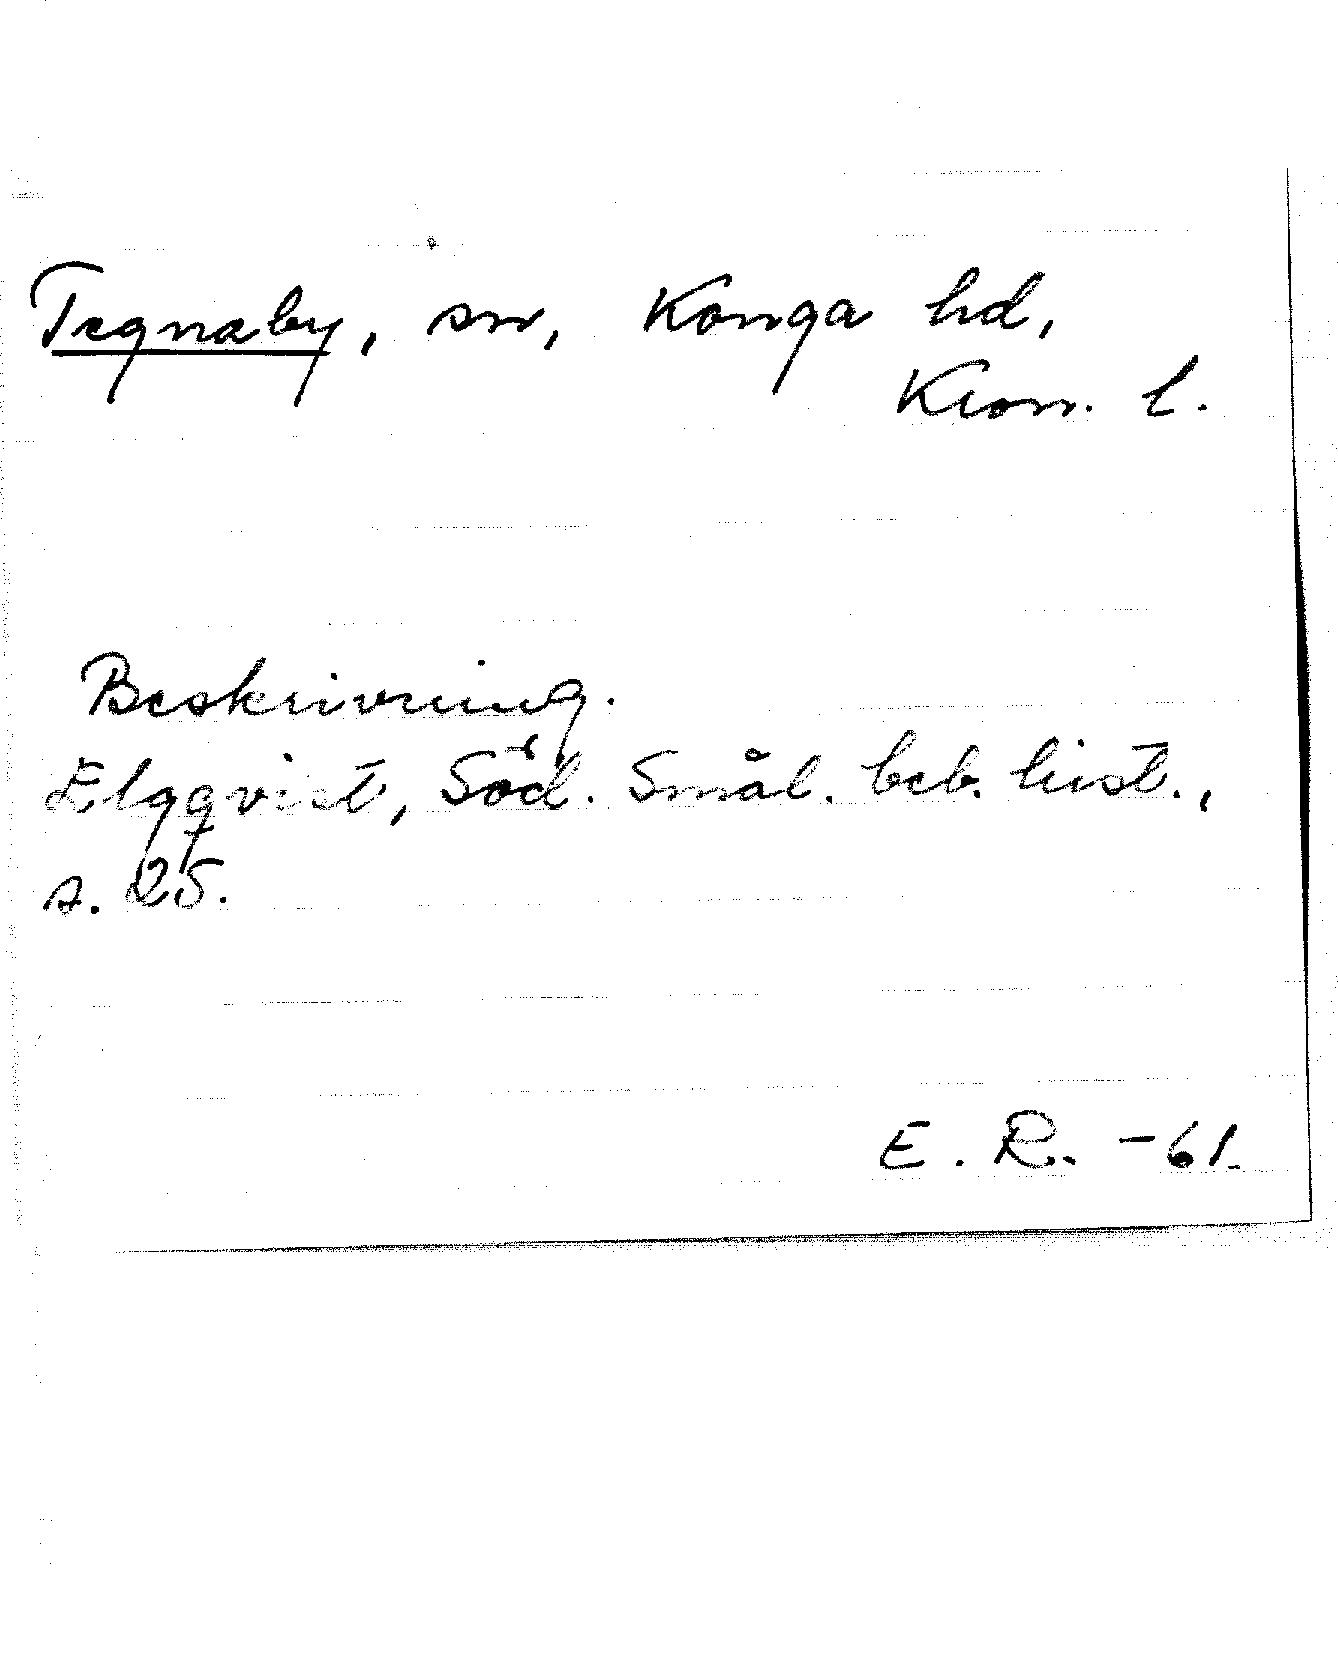 Tegnaby, sn, Konga hd,
Kron. l.
Beskrivning.
Elgqvist, Söd. Smål. beb. hist.,
s. 25.
E. R. -61.